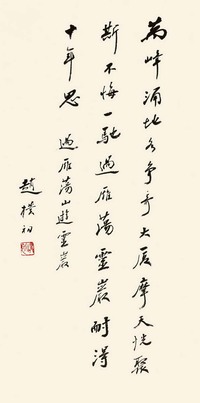 萬峰涌地各争奇大厦摩天恍聚
斯不悔一馳過雁蕩靈巖耐得
十年思 過雁蕩山遊靈巖
趙樸初